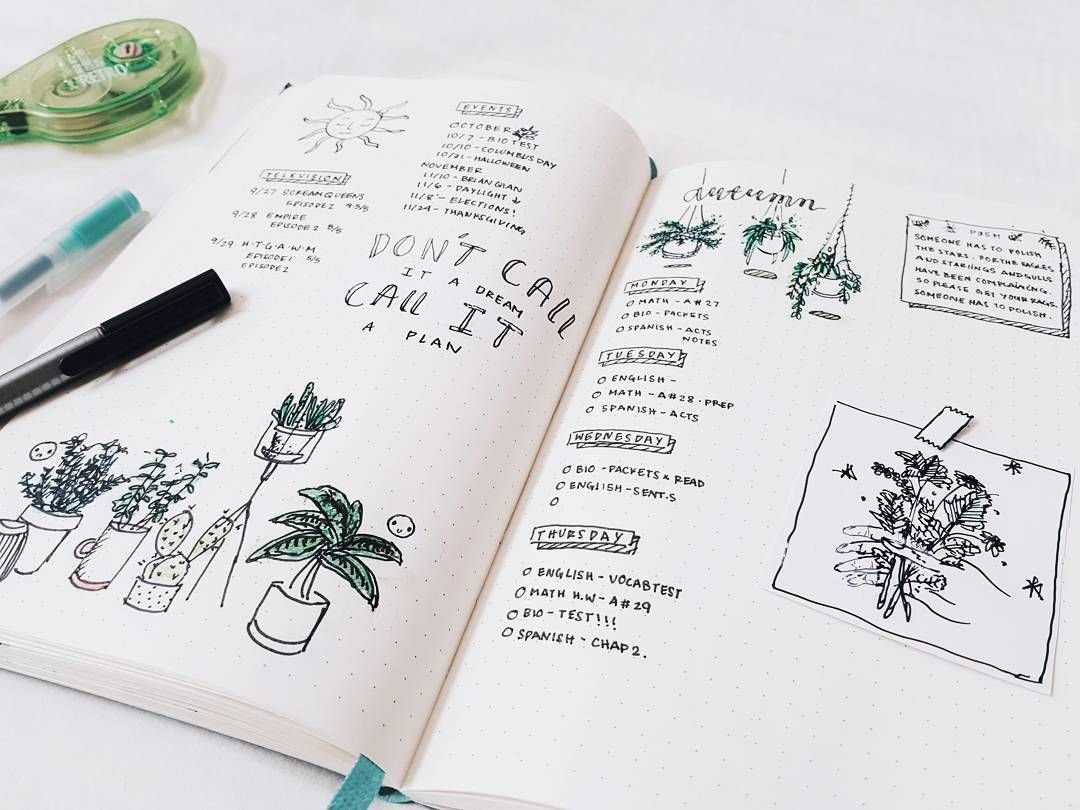 RETRO
EVENTS
OCTOBER
10/7 - BIO TEST
10/10 - COLUMBUS DAY
10/31 - HALLOWEEN
NOVEMBER
11/10 - BRIAN QIAN
11/6 - DAYLIGHT ↓
11/8 - ELECTIONS!
11/24 - THANKSGIVING
TELEVISION
9/27 SCREAM QUEENS
EPISODE 2 4.5/5
9/28 EMPIRE
EPISODE 2 5/5
9/29 H·T·G·A·W·M
EPISODE 1 5/5
EPISODE 2
DON'T CALL
IT A DREAM
CALL IT
A PLAN
autumn
MONDAY
MATH - A#27
BIO - PACKETS
SPANISH - ACTS
NOTES
TUESDAY
ENGLISH -
MATH - A#28 · PREP
SPANISH - ACTS
WEDNESDAY
BIO - PACKETS × READ
ENGLISH - SENT. 5
THURSDAY
ENGLISH - VOCAB TEST
MATH H.W - A#29
BIO - TEST!!!
SPANISH - CHAP 2.
POSH
SOMEONE HAS TO POLISH
THE STARS. FOR THE EAGLES
AND STARLINGS AND GULLS
HAVE BEEN COMPLAINING.
SO PLEASE GET YOUR RAGS.
SOMEONE HAS TO POLISH.